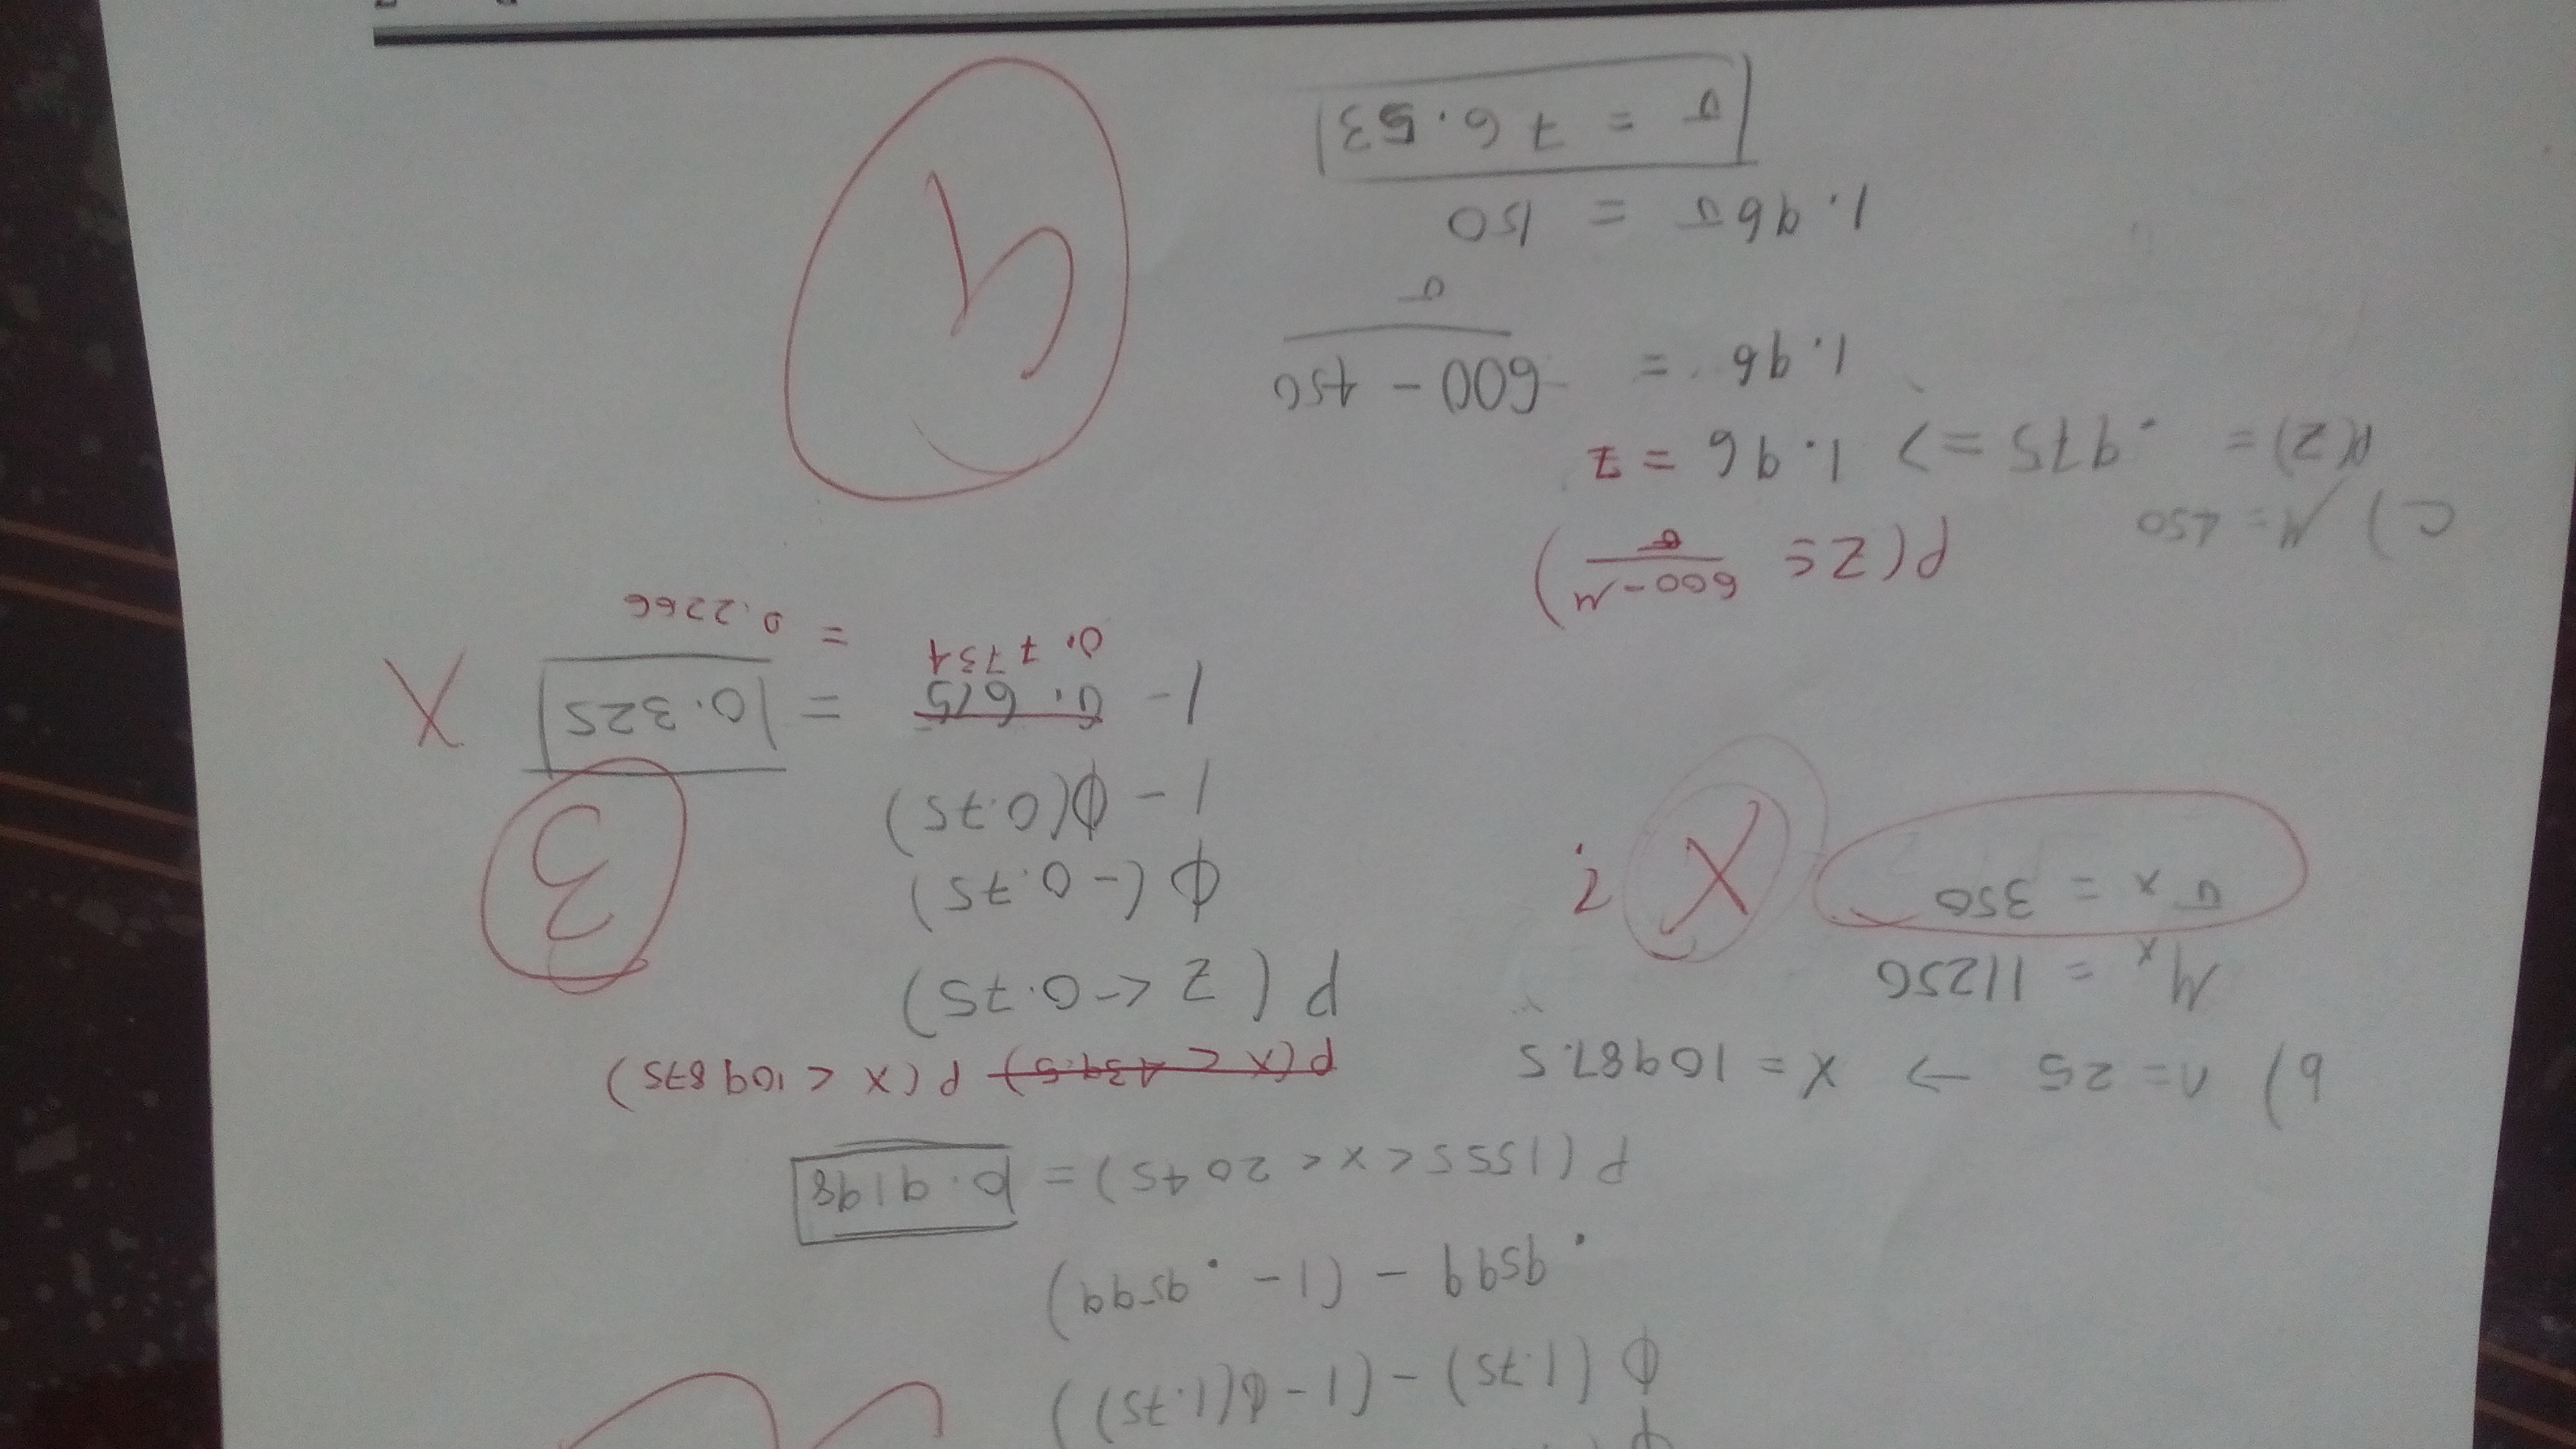 φ(1.75) - (1 - φ(1.75))
.9599 - (1 - .9599)
P(1555 < x < 2045) = 0.9198
b) n = 25 → X = 10987.5
μx = 11250
σx = 350 X ?
P(X < 439.5) P(X < 109875)
P(Z < -0.75)
φ(-0.75)
1 - φ(0.75)
3
1 - 0.675 = 0.325 X
0.7734 = 0.2266
c) μ = 450
P(Z ≤ 600-μ/σ)
P(Z) = .975 => 1.96 = z
1.96 = 600 - 450
σ
1.96σ = 150
σ = 76.53
4